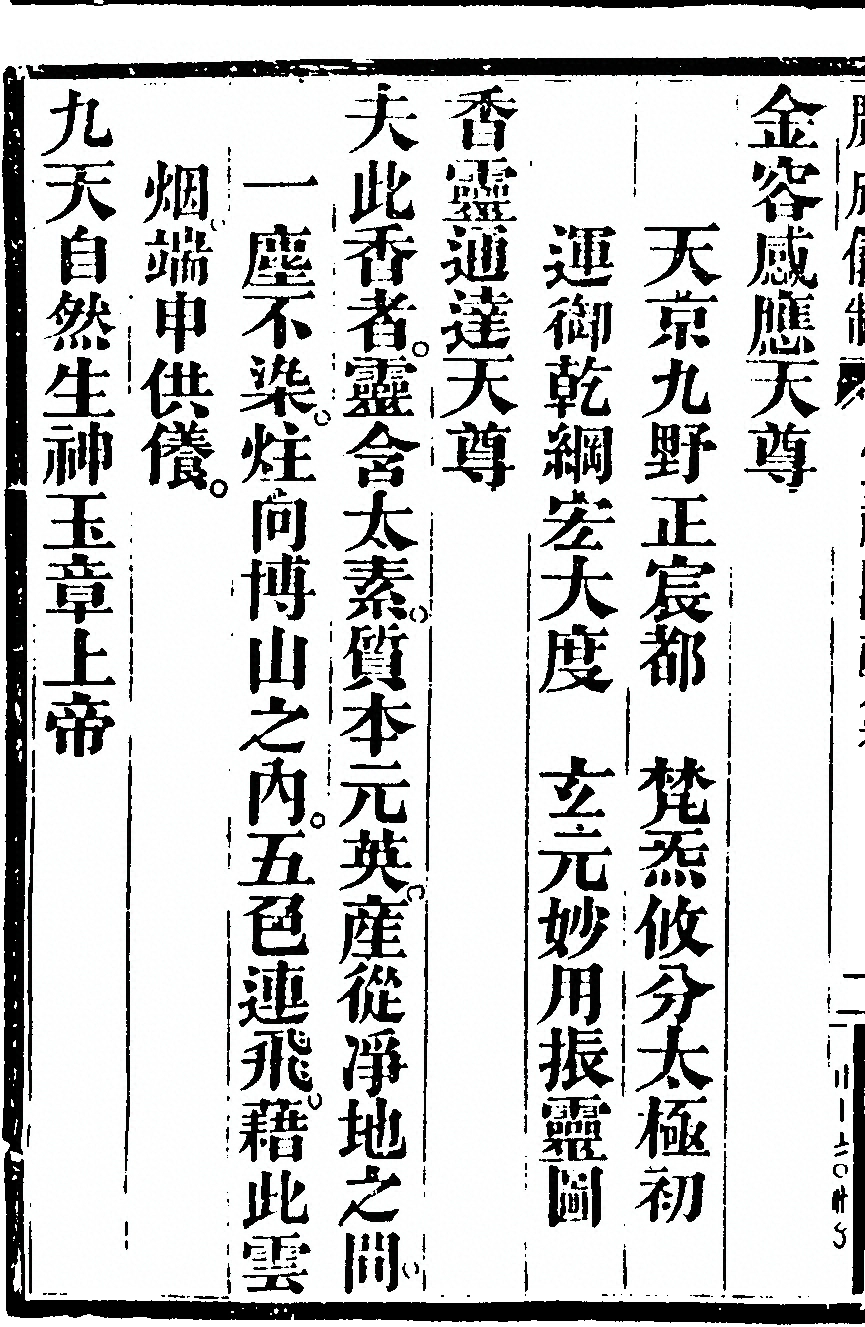 金容感應天尊
天京九野正宸都　梵炁攸分太極初
運御乾綱宏大度　玄元妙用振靈圖
香靈通達天尊
夫此香者。靈含太素。質本元英。產從淨地之間。
一塵不染。炷向博山之內。五色連飛。藉此雲
烟。端申供養。
九天自然生神玉章上帝